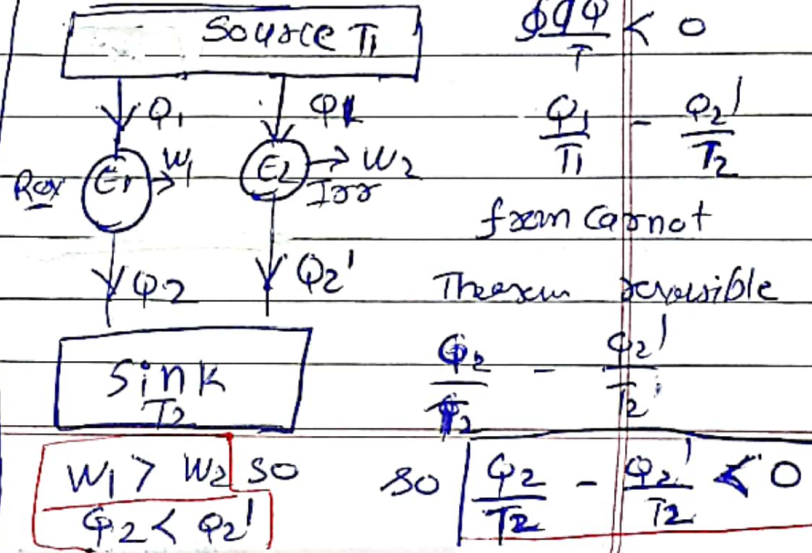 Source T1
Q1
Q1
Rev
E1
W1
E2
W2
Irr
Q2
Q2'
Sink
T2
W1 > W2 so
Q2 < Q2'
∮dQ/T < 0
Q1/T1 - Q2'/T2
from Carnot
Theorem reversible
Q2/T2 - Q2'/T2
so Q2/T2 - Q2'/T2 < 0